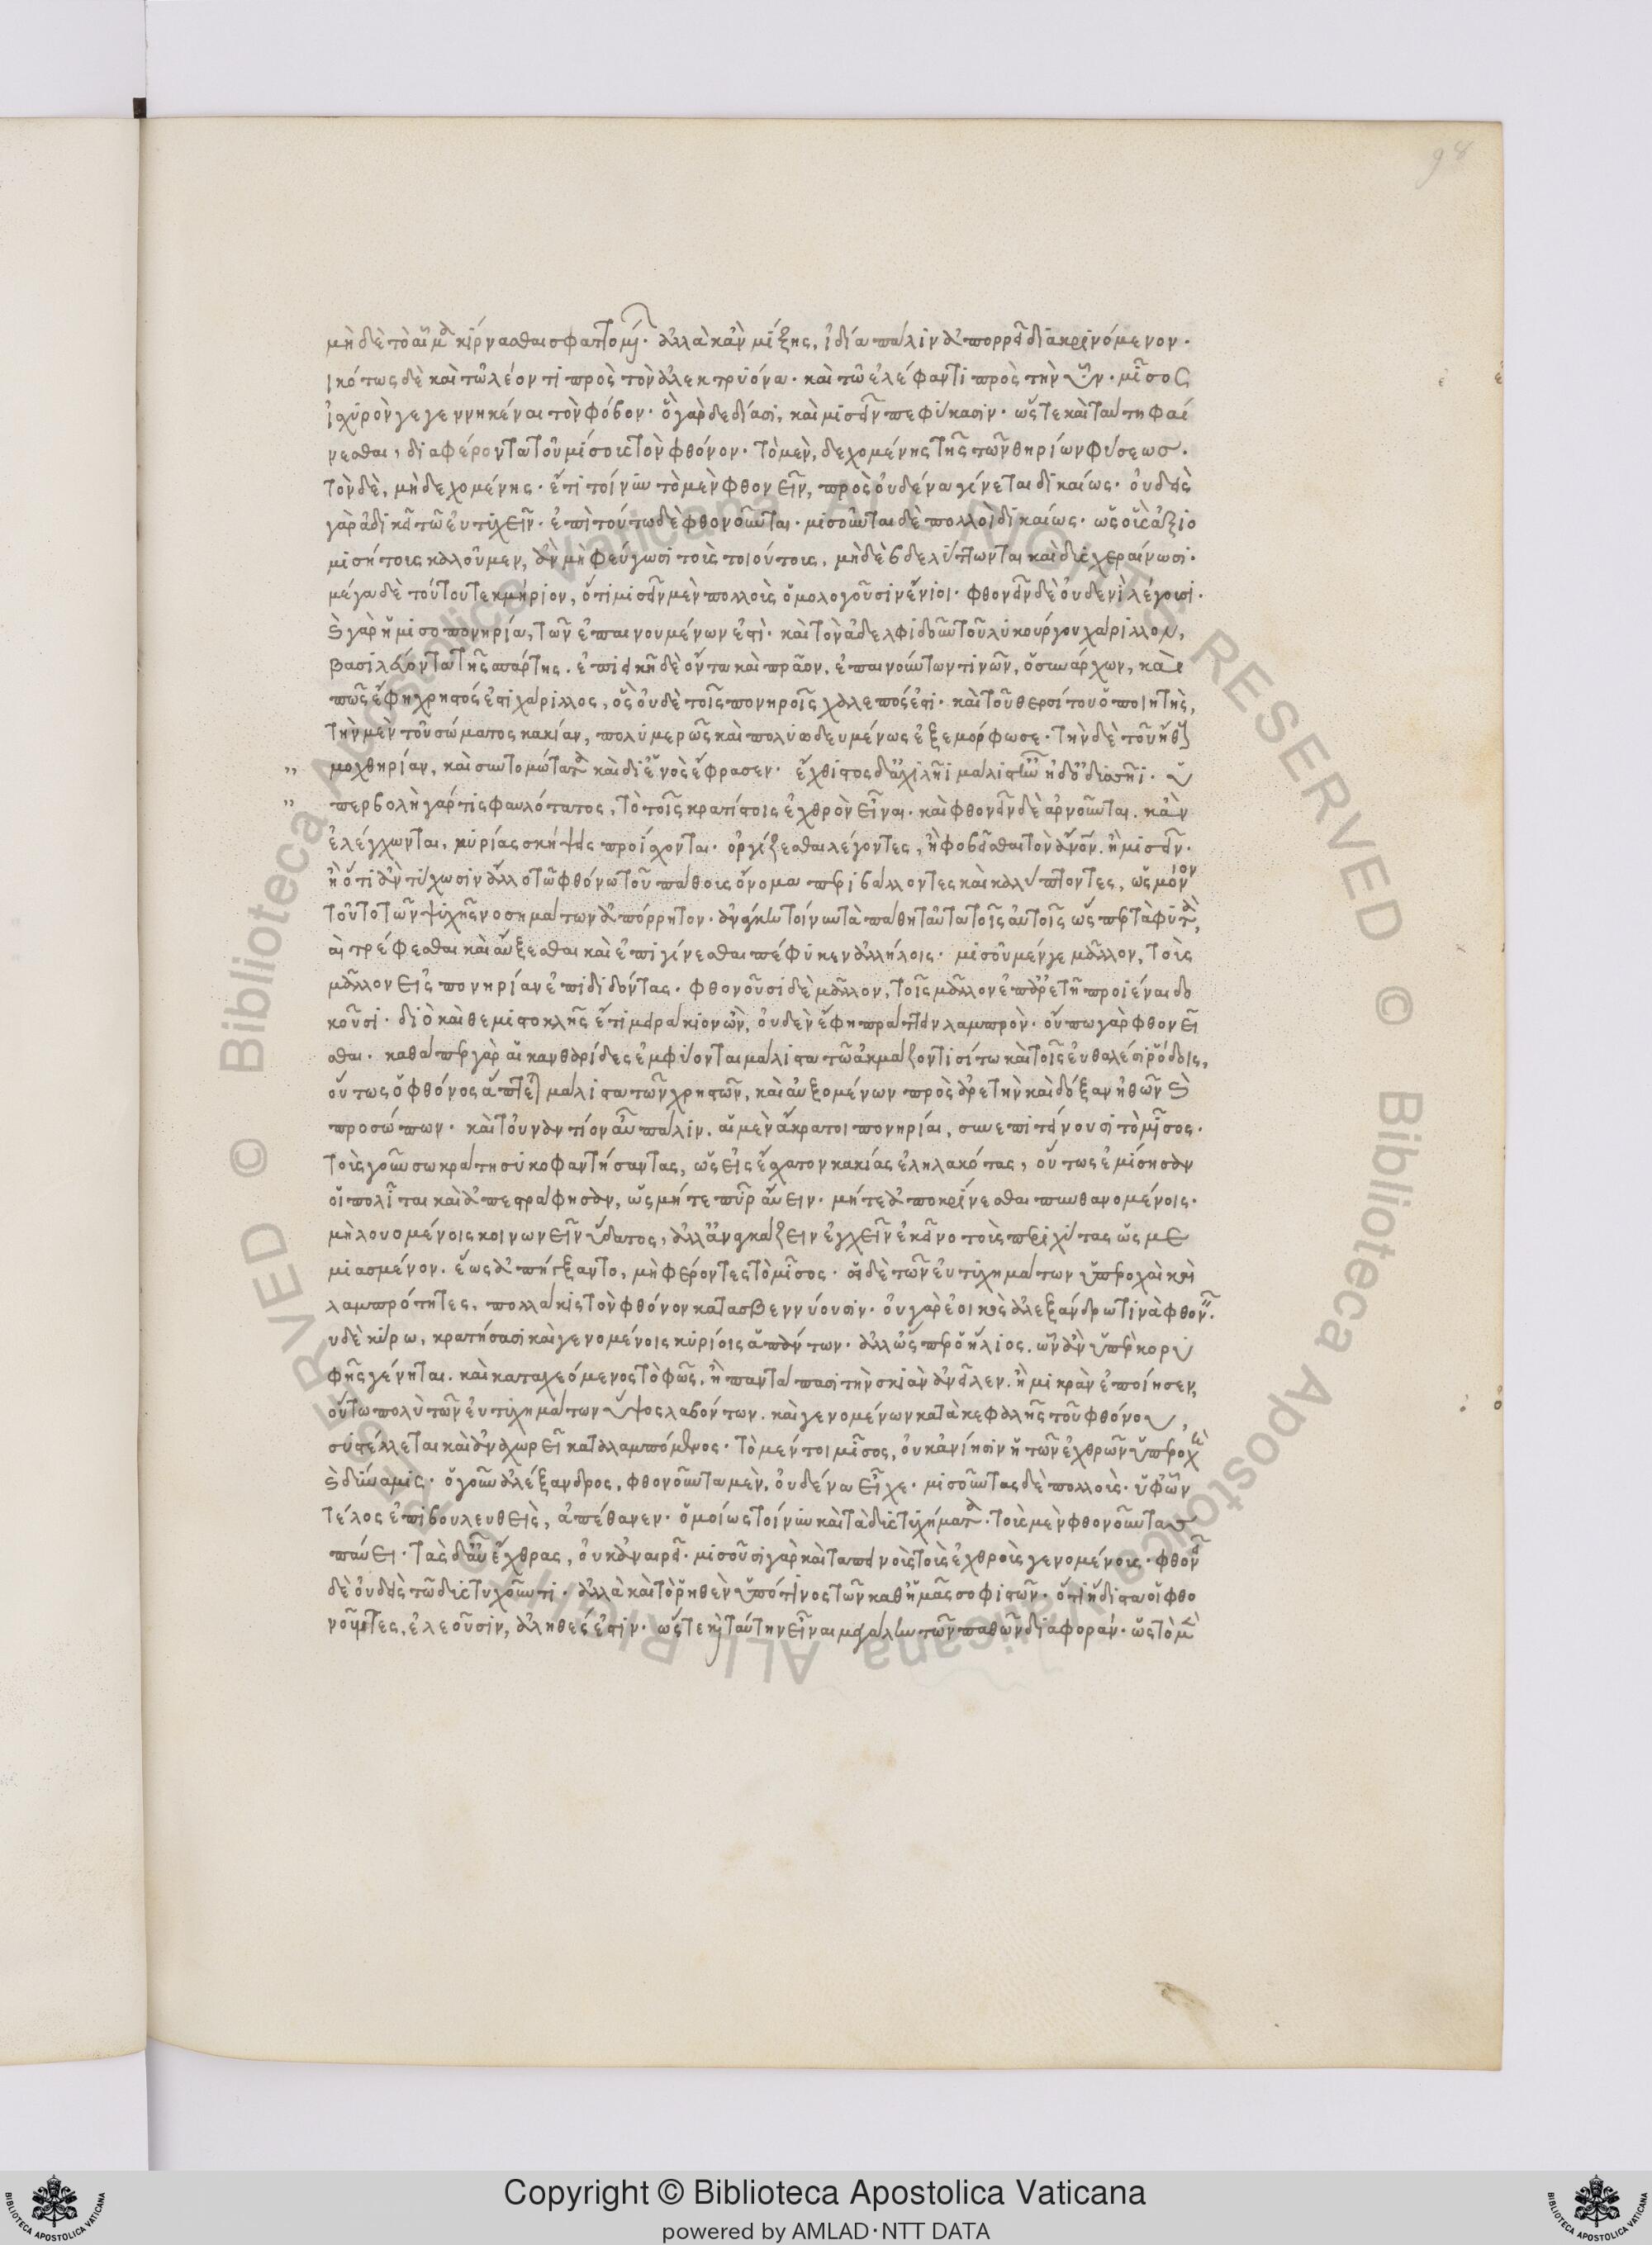 98
μὴ δὲ τὸ αἷμα κίρνασθαι σφαττομένων· ἀλλὰ κἂν μίξης, ἰδία πάλιν ἀπορρεῖ διακρινόμενον·
ικότως δὲ καὶ τῶ λέοντι πρὸς τὸν ἀλεκτρυόνα· καὶ τῶ ἐλέφαντι πρὸς τὴν ὗν· μῖσος
ἰσχυρὸν γεγεννηκέναι τὸν φόβον· ὃ γὰρ δεδίασι, καὶ μισεῖν πεφύκασιν· ὥστε καὶ ταύτη φαί
νεσθαι, διαφέροντα τοῦ μίσους τὸν φθόνον· τὸ μὲν, δεχομένης τῆς τῶν θηρίων φύσεως·
τὸν δὲ, μὴ δεχομένης· ἔτι τοίνυν τὸ μὲν φθονεῖν, πρὸς οὐδένα γίνεται δικαίως· οὐδεὶς
γὰρ ἀδικεῖ τῶ εὐτυχεῖν· ἐπὶ τούτω δὲ φθονοῦνται· μισοῦνται δὲ πολλοὶ δικαίως· ὡς οὓς ἀξιο
μισήτους καλοῦμεν, ἂν μὴ φεύγωσι τοὺς τοιούτους, μηδὲ βδελύττωνται καὶ δυσχεραίνωσι·
μέγα δὲ τούτου τεκμήριον, ὅτι μισεῖν μὲν πολλοὺς ὁμολογοῦσιν ἔνιοι· φθονεῖν δὲ οὐδενὶ λέγουσι·
καὶ γὰρ ἡ μισοπονηρία, τῶν ἐπαινουμένων ἐστί· καὶ τὸν ἀδελφιδοῦν τοῦ λυκούργου χάριλλον,
βασιλεύοντα τῆς σπάρτης. ἐπιεικῆ δὲ ὄντα καὶ πρᾶον, ἐπαινούντων τινῶν, ὁ συνάρχων, καὶ
πῶς ἔφη χρηστός ἐστι χάριλλος, ὃς οὐδὲ τοῖς πονηροῖς χαλεπός ἐστι· καὶ τοῦ θερσίτου ὁ ποιητὴς,
τὴν μὲν τοῦ σώματος κακίαν, πολυμερῶς καὶ πολυωδευμένως ἐξεμόρφωσε· τὴν δὲ τοῦ ἤθους
μοχθηρίαν, καὶ συντομώτατα καὶ δι ἑνὸς ἔφρασεν· ἔχθιστος δ ἀχιλῆϊ μάλιστ ἦν ἠδ ὀδυσῆϊ· ὑ
περβολὴ γάρ τις φαυλότατος, τὸ τοῖς κρατίστοις ἐχθρὸν εἶναι· καὶ φθονεῖν δὲ ἀρνοῦνται. κἂν
ἐλέγχωνται, μυρίας σκήψεις προίσχονται· ὀργίζεσθαι λέγοντες, ἢ φοβεῖσθαι τὸν ἄνθρωπον. ἢ μισεῖν·
ἢ ὅτι ἂν τύχωσιν ἄλλο τῶ φθόνω τοῦ πάθους ὄνομα περιβάλλοντες καὶ καλύπτοντες, ὡς μόνον
τοῦτο τῶν ψυχῆς νοσημάτων ἀπόρρητον· ἀνάγκη τοίνυν τὰ πάθη ταῦτα τοῖς αὐτοῖς ὥσπερ τὰ φυτὰ,
αι τρέφεσθαι καὶ αὔξεσθαι καὶ ἐπιγίνεσθαι πέφυκεν ἀλλήλοις· μισοῦμέν γε μᾶλλον, τοὺς
μᾶλλον εἰς πονηρίαν ἐπιδιδόντας· φθονοῦσι δὲ μᾶλλον, τοῖς μᾶλλον ἐπ ἀρετῆ προϊέναι δο
κοῦσι· διὸ καὶ θεμιστοκλῆς ἔτι μειράκιον ὢν, οὐδὲν ἔφη πράττειν λαμπρὸν· οὔπω γὰρ φθονεῖ
σθαι· καθάπερ γὰρ αἱ κανθαρίδες ἐμφύονται μάλιστα τῶ ἀκμάζοντι σίτω καὶ τοῖς εὐθαλέσι ῥόδοις,
οὕτως ὁ φθόνος ἅπτεται μάλιστα τῶν χρηστῶν, καὶ αὐξομένων πρὸς ἀρετὴν καὶ δόξαν ἠθῶν καὶ
προσώπων· καὶ τοὐναντίον αὖ πάλιν. αἱ μὲν ἄκρατοι πονηρίαι, συνεπιτείνουσι τὸ μῖσος·
τοὺς γοῦν σωκράτη συκοφαντήσαντας, ὡς εἰς ἔσχατον κακίας ἐληλακότας, οὕτως ἐμίσησαν
οἱ πολῖται καὶ ἀπεστράφησαν, ὡς μήτε πῦρ αὔειν· μήτε ἀποκρίνεσθαι πυνθανομένοις·
μὴ λουομένοις κοινωνεῖν ὕδατος, ἀλλ ἀναγκάζειν ἐγχεῖν ἐκεῖνο τοὺς περιχύτας ὡς με
μιασμένον. ἕως ἀπήγξαντο, μὴ φέροντες τὸ μῖσος· αἱ δὲ τῶν εὐτυχημάτων ὑπεροχαὶ καὶ
λαμπρότητες, πολλάκις τὸν φθόνον κατασβεννύουσιν· οὐ γὰρ ἐοικὸς ἀλεξάνδρω τινὰ φθονεῖν·
υδὲ κύρω, κρατήσασι καὶ γενομένοις κυρίοις ἁπάντων· ἀλλ ὥσπερ ὁ ἥλιος. ὧν ἂν ὑπὲρ κορυ
φῆς γένηται. καὶ καταχεόμενος τὸ φῶς, ἢ παντάπασι τὴν σκιὰν ἀνεῖλεν. ἢ μικρὰν ἐποίησεν,
οὕτω πολὺ τῶν εὐτυχημάτων ὕψος λαβόντων. καὶ γενομένων κατὰ κεφαλῆς τοῦ φθόνου,
συστέλλεται καὶ ἀναχωρεῖ καταλαμπόμενος· τὸ μέντοι μῖσος, οὐκ ἀνίησιν ἡ τῶν ἐχθρῶν ὑπεροχὴ
καὶ δύναμις· ὁ γοῦν ἀλέξανδρος, φθονοῦντα μὲν, οὐδένα εἶχε· μισοῦντας δὲ πολλοὺς· ὑφ ὧν
τέλος ἐπιβουλευθεὶς, ἀπέθανεν· ὁμοίως τοίνυν καὶ τὰ δυστυχήματα· τοὺς μὲν φθονοῦντας
παύει· τὰς δ αὖ ἔχθρας, οὐκ ἀναιρεῖ· μισοῦσι γὰρ καὶ ταπεινοὺς τοὺς ἐχθροὺς γενομένους· φθονεῖ
δὲ οὐδεὶς τῶ δυστυχοῦντι· ἀλλὰ καὶ τὸ ῥηθὲν ὑπό τινος τῶν καθ ἡμᾶς σοφιστῶν· ὅτι ἥδιστα οἱ φθο
νοῦντες, ἐλεοῦσιν, ἀληθές ἐστιν· ὥστε καὶ ταύτην εἶναι μεγάλην τῶν παθῶν διαφοράν· ὡς τὸ μὲν